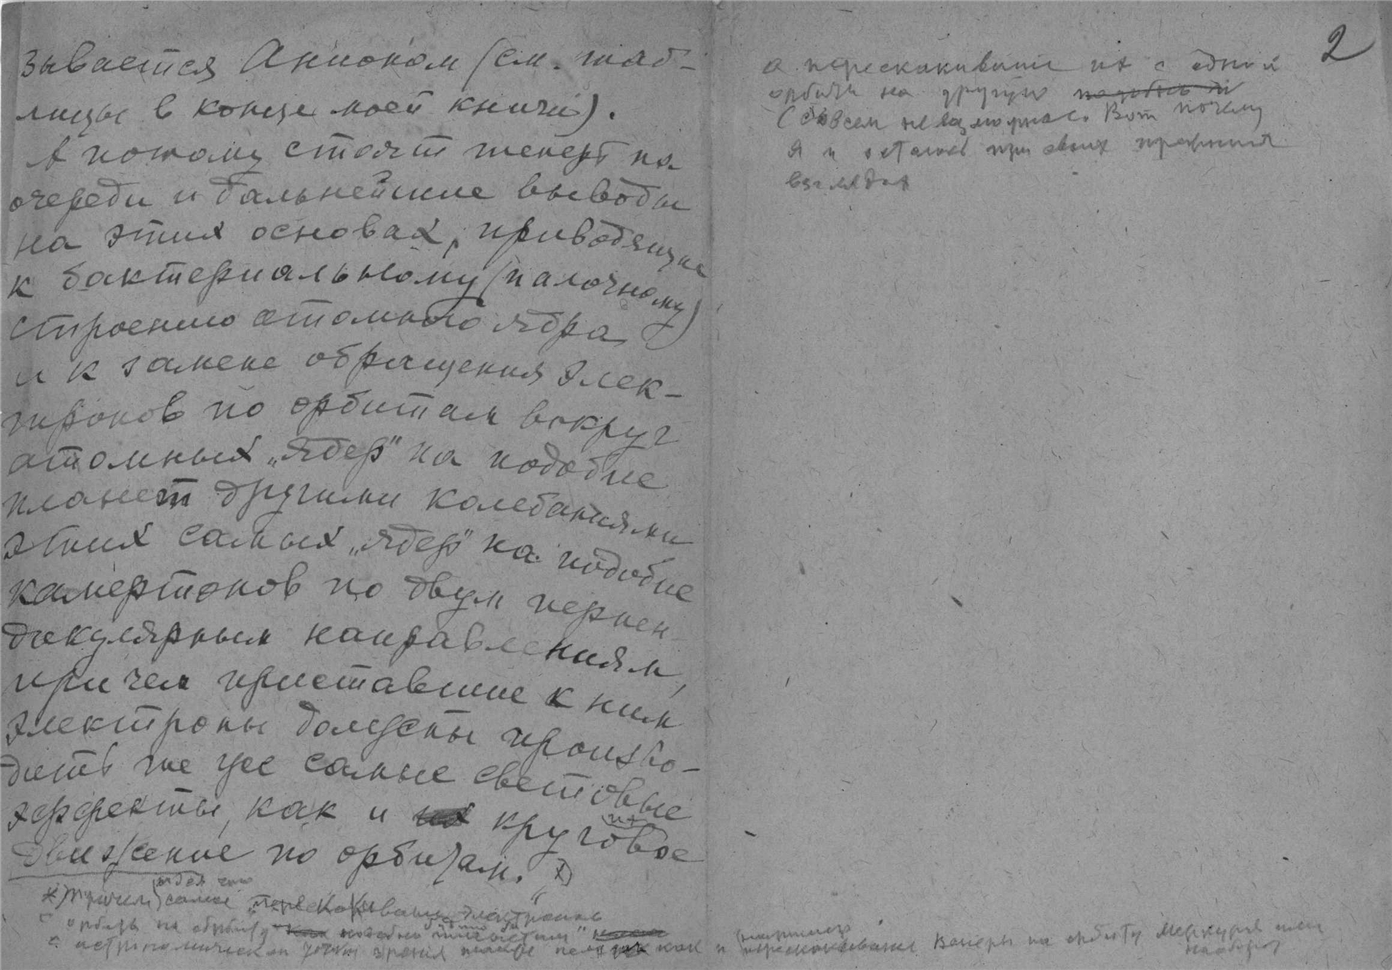 зывается Анионом (см. таб-
лицы в конце моей книги).
А потому стоят теперь на
очереди и дальнейшие выводы
на этих основах, приводящие
к бактериальному (палочному)
строению атомного ядра
и к замене обращения элек-
тронов по орбитам вокруг
атомных „ядер" на подобие
планет другими колебаниями
этих самых „ядер" на подобие
камертонов по двум перпен-
дикулярным направлениям,
при чем приставшие к ним
электроны должны произво-
дить те же самые световые
эффекты, как и их круговое
движение по орбитам."
самое перескакиванье электронов
с орбиты на орбиту
с астрономической точки зрения как и перескакивание Венеры на орбиту Меркурия или
наоборот
2
а перескакивание их с одной
орбиты на другую
совсем невозможно. Вот почему
я и остаюсь при своих прежних
взглядах